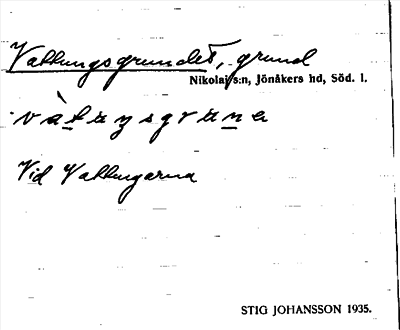 Vattungsgrundet, grund
Nikolai s:n, Jönåkers hd, Söd. l.
Vid Vattungarna
STIG JOHANSSON 1935.